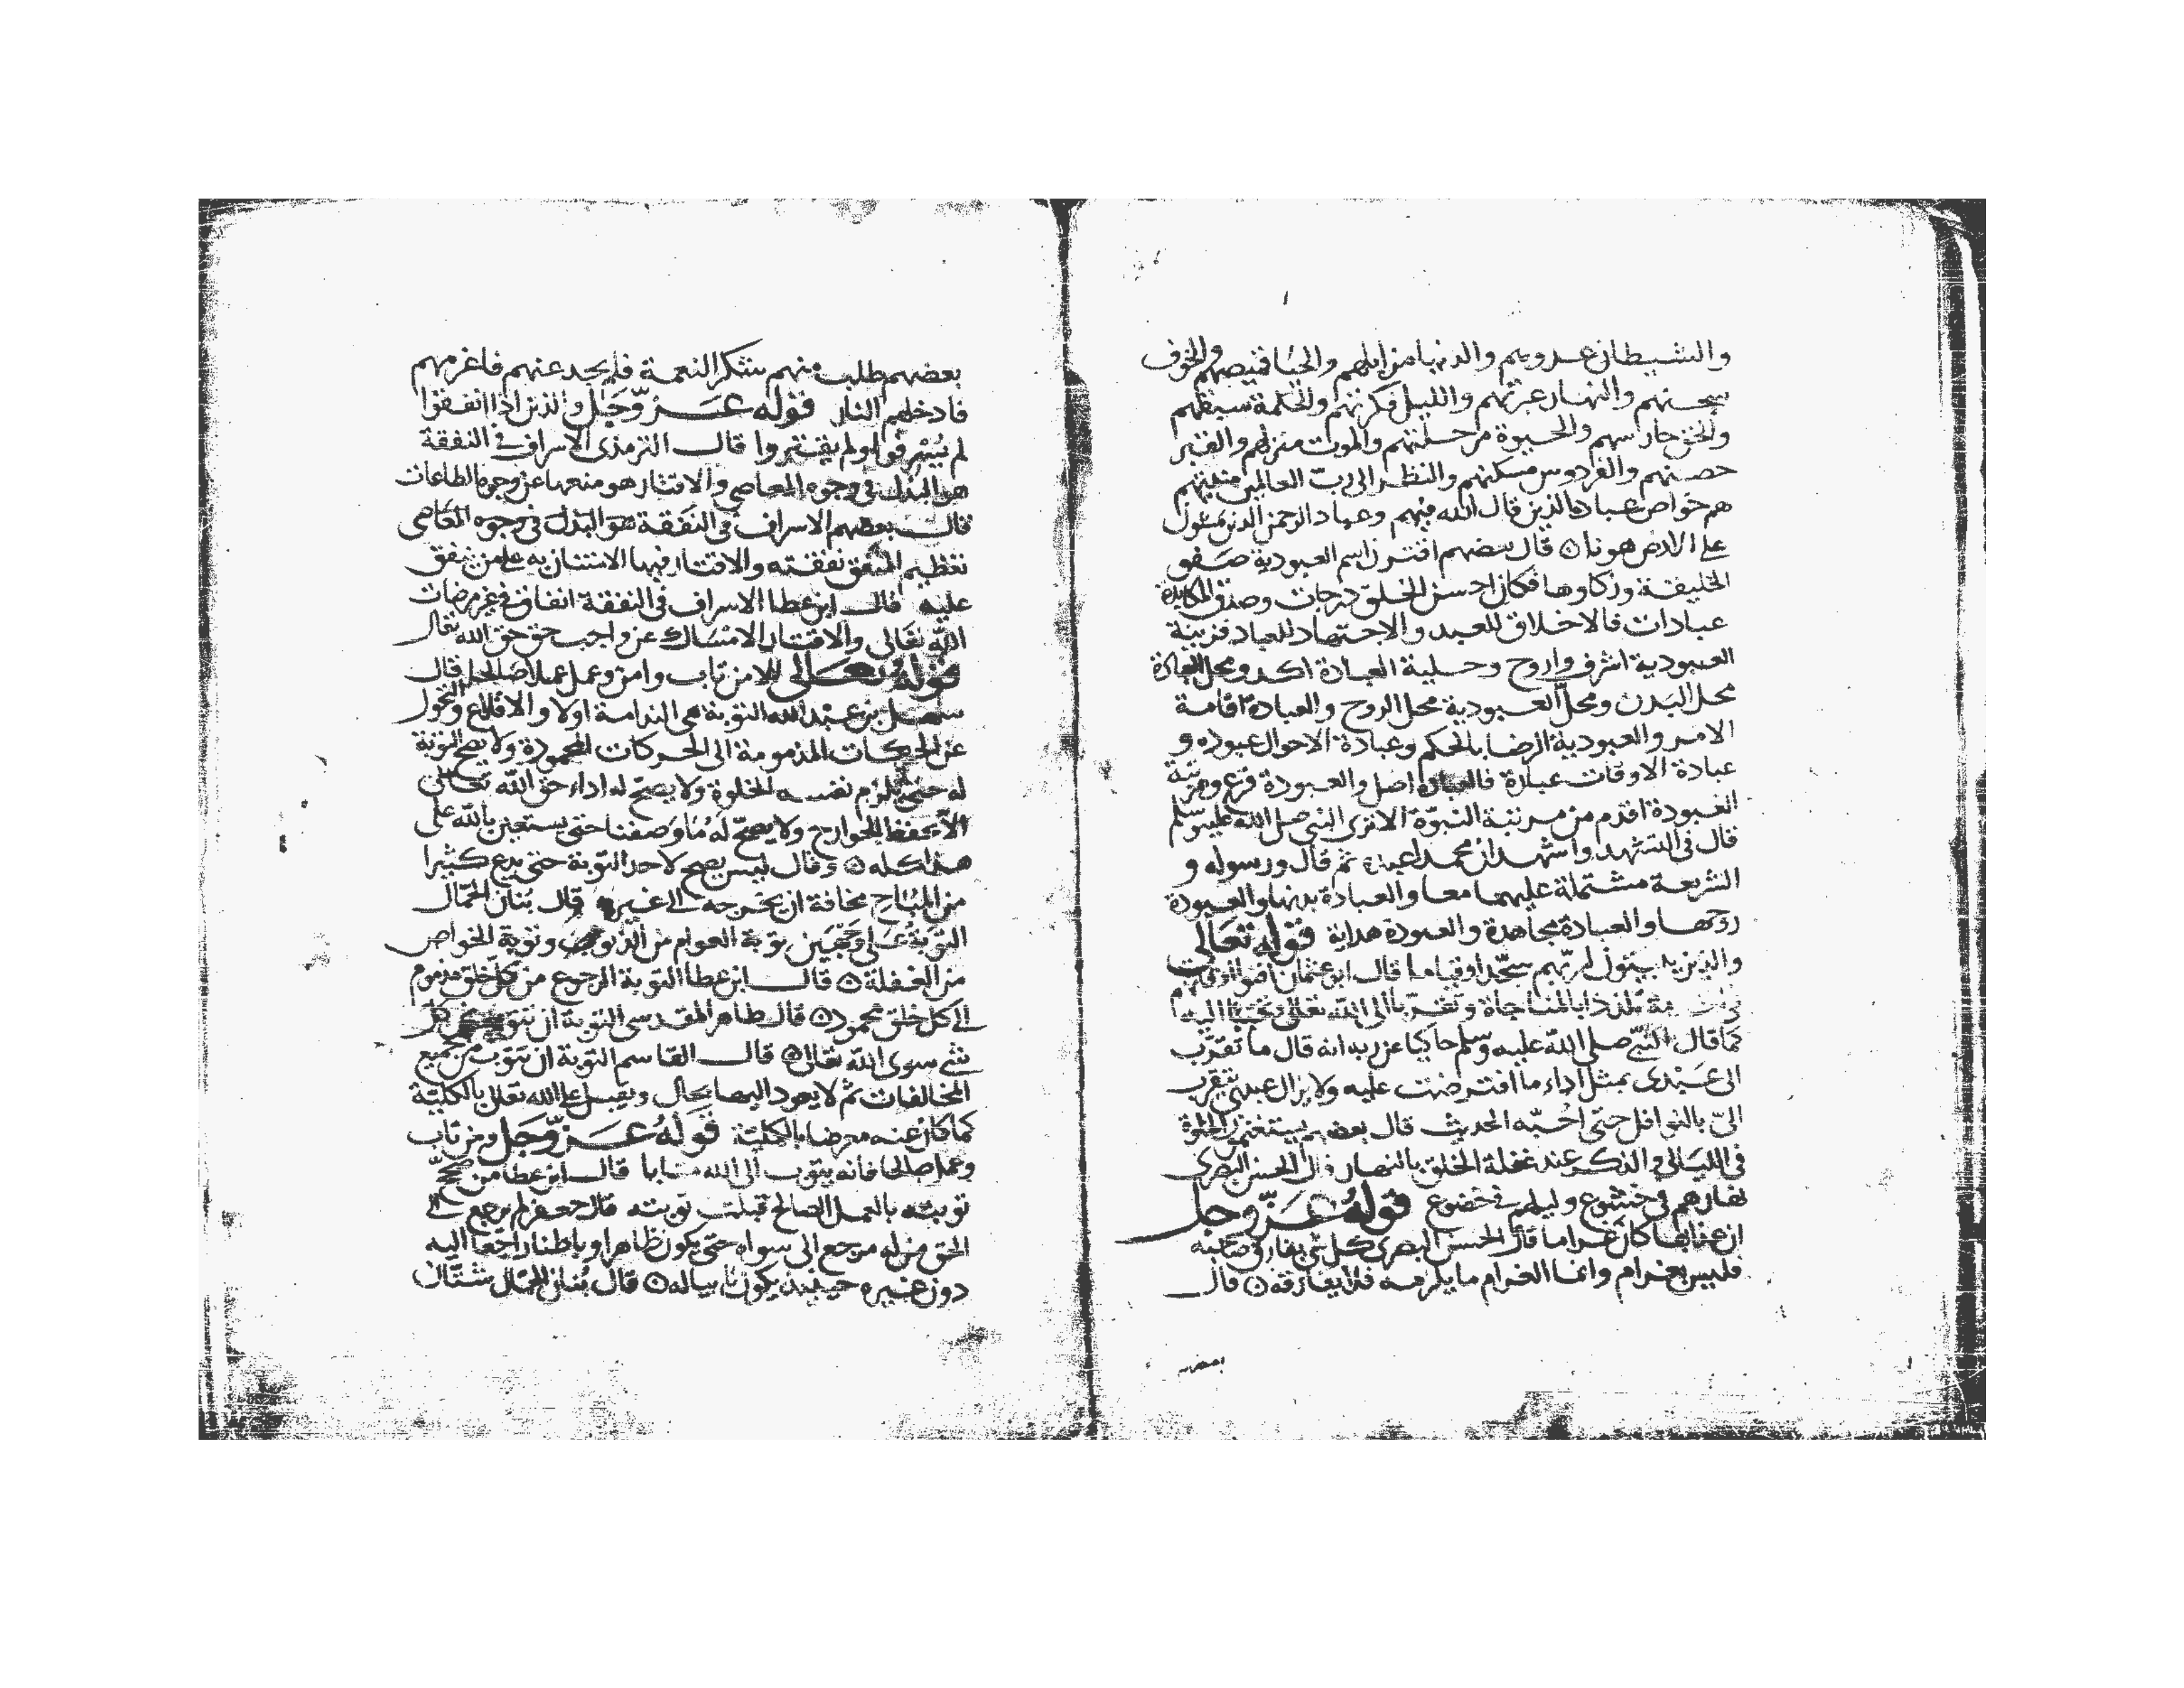 والشيطان عدوهم والدنيا مزابلهم والحيا قميصهم والخوف
سجنهم والنهار عبرتهم والليل فكرتهم والحكمة سيفهم
والحق حارسهم والحيوة مرحلتهم والموت منزلهم والقبر
حصنهم والفردوس مسكنهم والنظر الى ربّ العالمين منيتهم
هم خواص عباده الذين قال الله فيهم وعباد الرحمن الذين يمشون
على الارض هونا ۞ قال بعضهم افترن اسم العبودية صفو
الخليقة وزكاوها فكان احسن الخلق درجات وصدق المكابدة
عبادات فالاخلاق للعبد والاجتهاد للعباد فزينة
العبودية اشرف واروح وحلية العبادة اكد ومحل العبادة
محل البدن ومحل العبودية محل الروح والعبادة اقامة
الامر والعبودية الرضا بالحكم وعبادة الاحوال عبوده و
عبادة الاوقات عبادة فالعبادة اصل والعبودة فرع ومرتبة
العبودة اقدم من مرتبة النبوّة الا ترى النبي صلى الله عليه وسلم
قال في التشهد واشهد ان محمدا عبده ثم قال ورسوله و
الشريعة مشتملة عليهما معا والعبادة بدنها والعبودة
روحها والعبادة مجاهدة والعبودة هداية قوله تعالى
والذين يبيتون لربهم سجّدا وقياما قال ابو عثمان افنوا اوقاتهم
تلذذا بالمناجاة وتقربا الى الله تعالى وتحببا اليه
كما قال النبي صلى الله عليه وسلم حاكيا عن ربه انه قال ما تقرّب
الى عبدى بمثل اداء ما افترضت عليه ولا يزال عبدى يتقرب
الىّ بالنوافل حتى احبّه الحديث قال بعضهم الخلوة
في الليالي والذكر عند غفلة الخلق بالنهار قال الحسن البصرى
نهارهم في خشوع وليلهم في خضوع قوله عزّ وجل
ان عذابها كان غراما قال الحسن البصرى كل شى يفارق صاحبه
فليس بغرام وانما الغرام ما يلزمه فلا يفارقه ۞ قال
بعضهم
بعضهم طلب منهم شكر النعمة فلم يجد عنهم فاغرمهم
فادخلهم النار قوله عزّ وجل والذين اذا انفقوا
لم يُسْرفوا ولم يقتروا قال الترمذى الاسراف في النفقة
هو البذل في وجوه المعاصي والاقتار هو منعها عن وجوه الطاعات
قال بعضهم الاسراف في النفقة هو البذل في وجوه المعاصى
تعظيم المنفق نفقته والاقتار فيها الامتنان به على من ينفق
عليه قال ابن عطا الاسراف في النفقة انفاق في غير مرضات
الله تعالى والاقتار الامساك عن واجب حق حق الله تعالى
قوله تعالى الا من تاب وامن وعمل عملا صالحا قال
سهل بن عبد الله التوبة هي الندامة اولا والاقلاع والتحول
عن الحركات المذمومة الى الحركات المحمودة ولا يصح التوبة
له حتى يلزم نفسه الخلوة ولا يصحّ له اداء حق الله تعالى
الا بحفظ الجوارح ولا يصحّ له ما وصفنا حتى يستعين بالله على
هذا كله ۞ وقال ليس يصح لاحد التوبة حتى يدع كثيرا
من المباح مخافة ان يخرجه الى غيره قال بنان الحمال
التوبة على وجهين توبة العوام من الذنوب وتوبة الخواص
من الغفلة ۞ قال ابن عطا التوبة الرجوع من كل خلق مذموم
الى كل خلق محمود ۞ قال طاهر المقدسى التوبة ان تتوب من كل
شى سوى الله تعالى ۞ قال القاسم التوبة ان تتوب من جميع
المخالفات ثم لا يعود اليها بحال ويقبل على الله تعالى بالكليّة
كما كان عنه معرضا بالكلية قوله عزّ وجل ومن تاب
وعمل صالحا فانه يتوب الى الله متابا قال ابن عطا من صحّح
توبته بالعمل الصالح قبلت توبته قال جعفر لم يرجع الى
الحق من له مرجع الى سواه حتى يكون ظاهرا وباطنا راجعا اليه
دون غيره حينئذ يكون تايبا له ۞ قال بُنان الحمّال شتّان